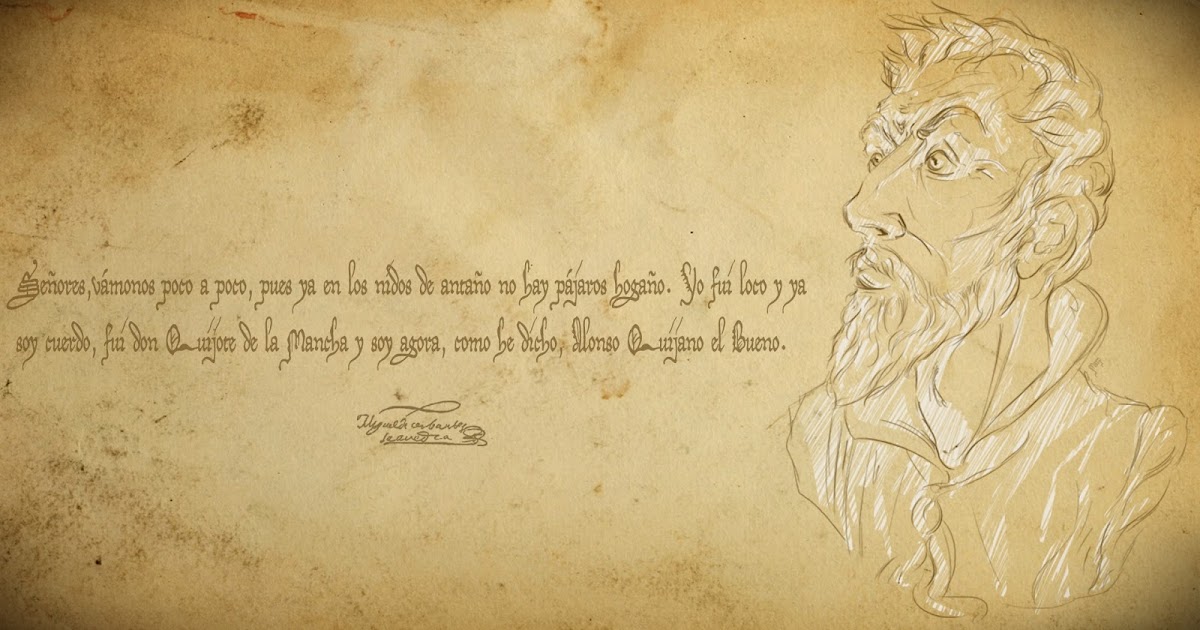 Señores,vámonos poco a poco, pues ya en los nidos de antaño no hay pájaros hogaño. Yo fuí loco y ya
soy cuerdo, fuí don Quijote de la Mancha y soy agora, como he dicho, Alonso Quijano el Bueno.
Miguel de Cerbantes
Saavedra